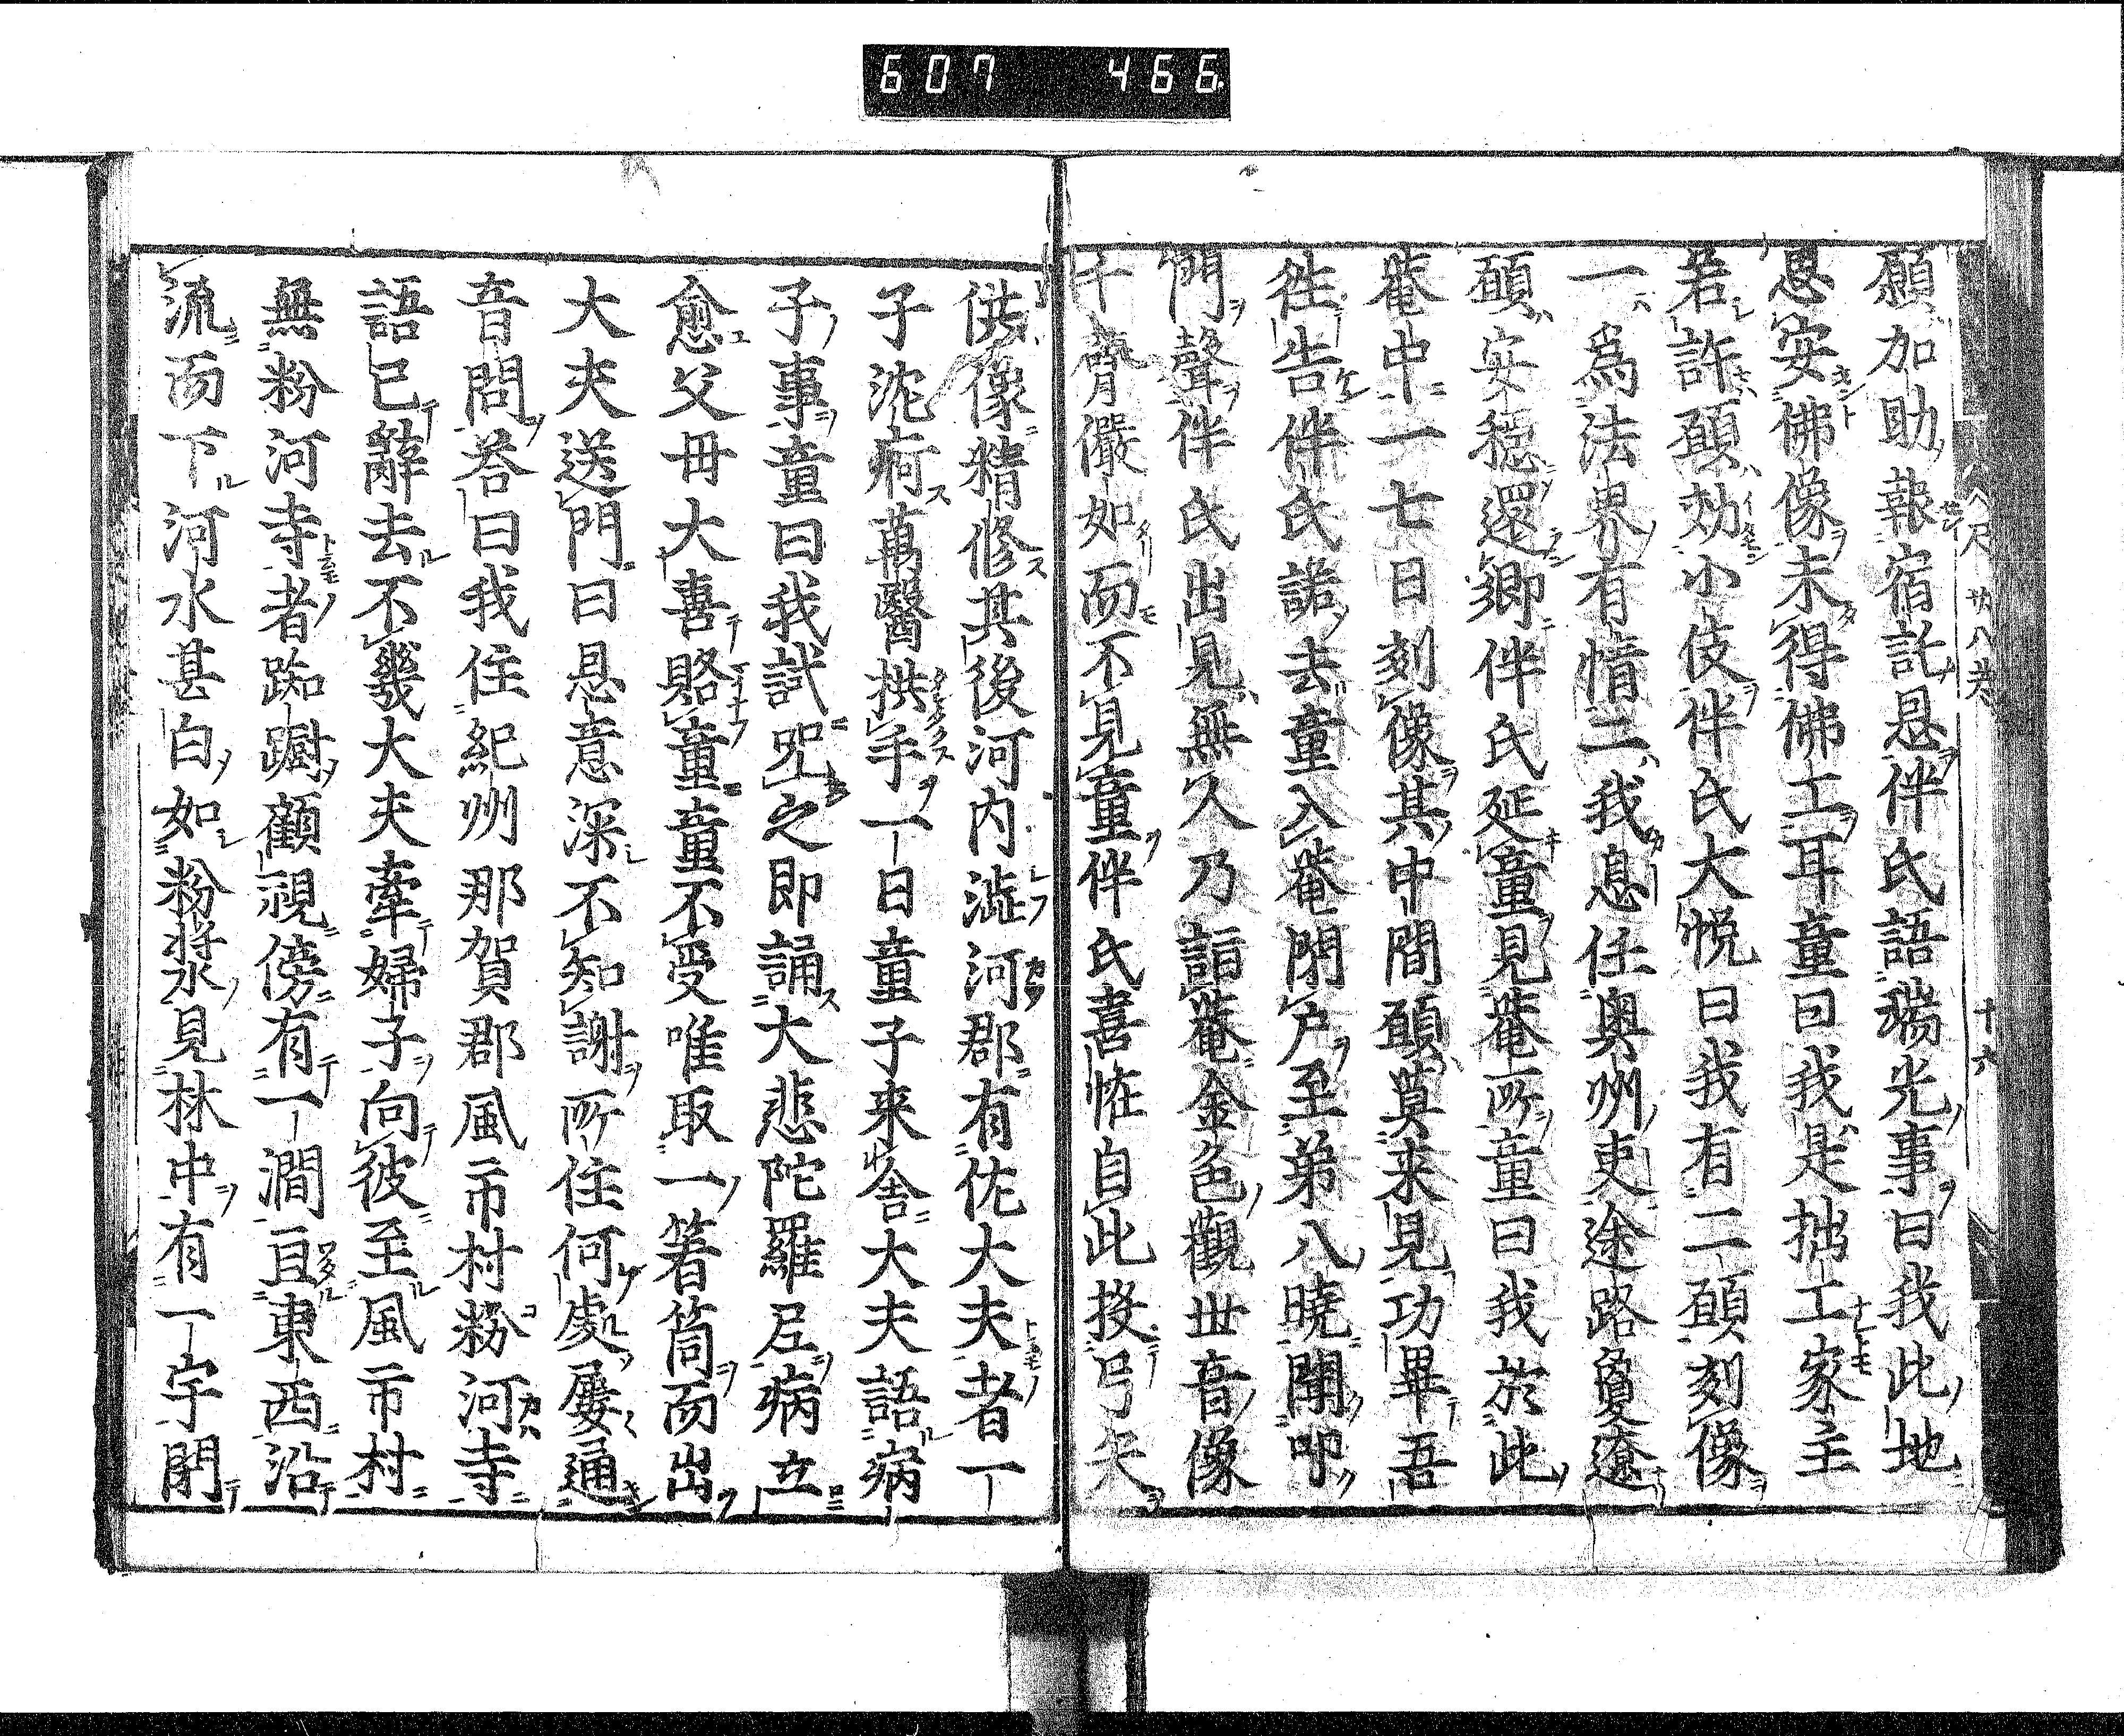 607 466
願加助報宿託恩伴氏語瑞光事曰我此地
恩安佛像未得佛工耳童曰我是拙工家主
若許願効小伎伴氏大悦曰我有二願刻像
一爲法界有情二我息任奥州吏途路夐遼
願安穏還郷伴氏延童見菴所童曰我於此
菴中一七日刻像其中間願莫来見功畢吾
徃告伴氏諾去童入菴閉户至第八曉聞叩
門聲伴氏出見無人乃詣菴金色觀世音像
千臂儼如而不見童伴氏喜恠自此投弓矢
供像精修其後河内澁河郡有佐大夫者一
子沈痾萬醫拱手一日童子来舎大夫語病
子事童曰我試呪之即誦大悲陀羅尼病立
愈父毋大喜賂童童不受唯取一箸筒而出
大夫送門曰恩意深不知謝所住何處屢通
音問荅曰我住紀州那賀郡風市村粉河寺
語已辭去不幾大夫牽婦子向彼至風市村
無粉河寺者踟蹰顧視傍有一澗亘東西沿
流而下河水甚白如粉漿見林中有一宇開
廿八 十六